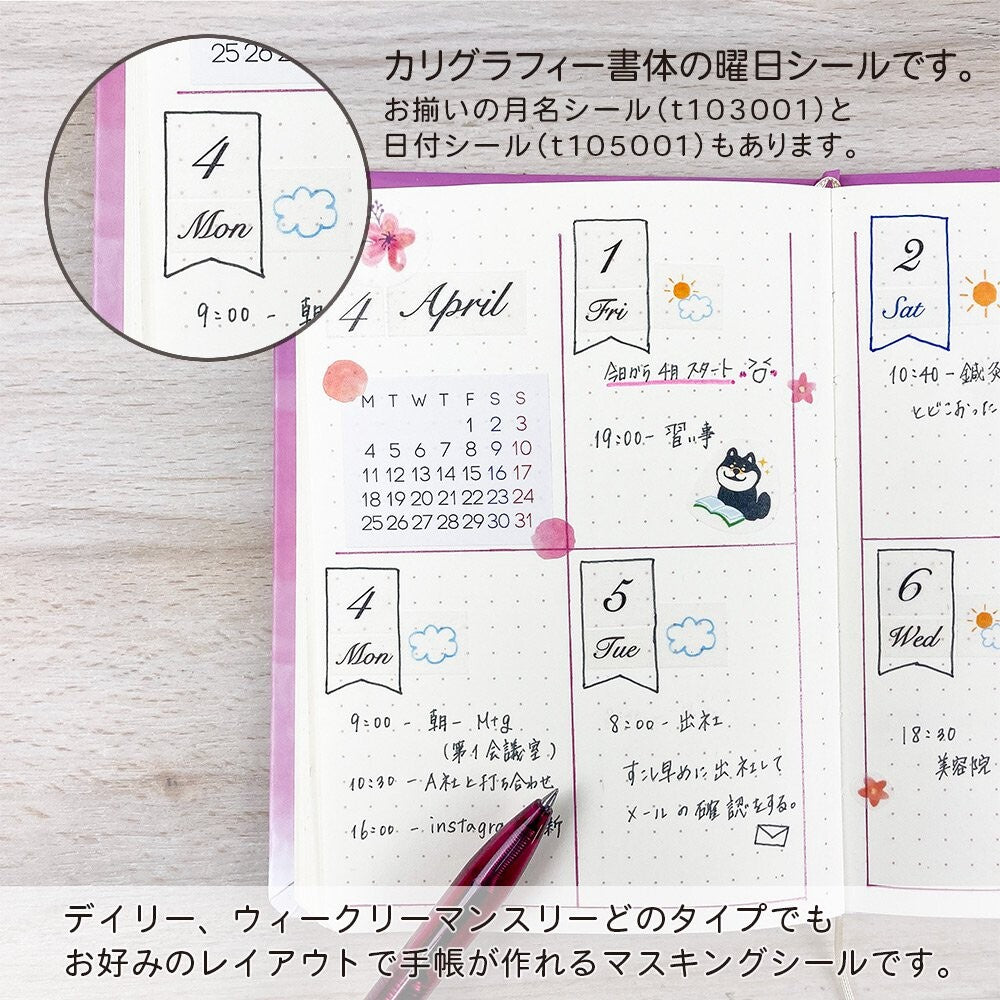 カリグラフィー書体の曜日シールです。
お揃いの月名シール(t103001)と
日付シール(t105001)もあります。
25 26
4
Mon
9:00 - 朝
4 April
M T W T F S S
1 2 3
4 5 6 7 8 9 10
11 12 13 14 15 16 17
18 19 20 21 22 23 24
25 26 27 28 29 30 31
1
Fri
今日から 4月 スタート
19:00 - 習い事
2
Sat
10:40 - 鍼灸
とどこおった
4
Mon
9:00 - 朝一 Mtg
(第1会議室)
10:30 - A社と打ち合わせ
16:00 - instagra 新
5
Tue
8:00 - 出社
すこし早めに出社して
メールの確認をする。
6
Wed
18:30
美容院
デイリー、ウィークリーマンスリーどのタイプでも
お好みのレイアウトで手帳が作れるマスキングシールです。